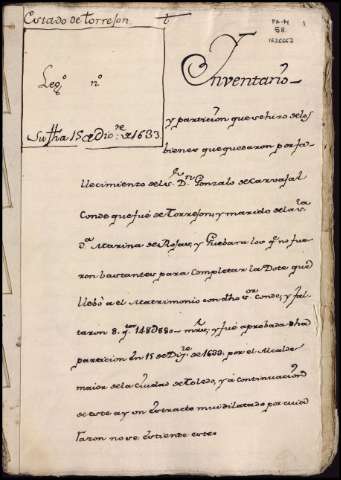 Estado de torrejon t
Leg.º n.º
Su fha 15 de Diz.re de 1633
Inventario
y particion que se hizo de los
bienes que quedaron por fa-
llecimiento del s.r D.n Gonzalo de Carvajal
Conde que fué de Torrejon, y marido de la s.ra
D.a Marina de Rojas, y Guebara los q.e no fue
ron bastantes para completar la Dote que
llebó a el Matrimonio con dho s.or conde, y fal-
taron 8. q.tos 148U880 mrs, y fue aprobada dha
particion en 15 de Diz.re de 1633, por el Alcalde
maior de la ciudad de Toledo, y á continuacion
de este ay un estracto mui dilatado por cuia
razon no se estiente este